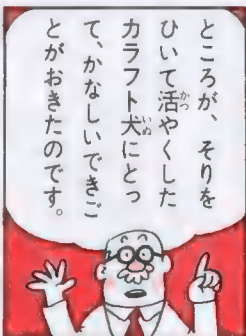 ところが、そりを
ひいて活やくした
カラフト犬にとっ
て、かなしいできご
とがおきたのです。